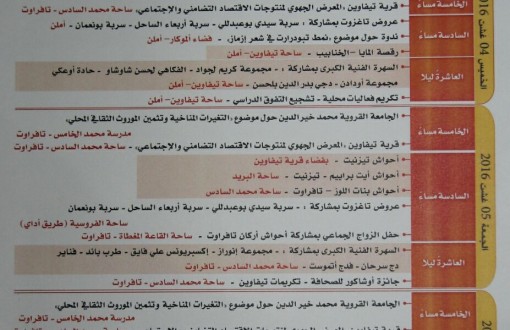 الخامسة مساء
قرية تيفاوين، المعرض الجهوي لمنتوجات الاقتصاد التضامني والاجتماعي، - ساحة محمد السادس - تافراوت
الخميس 04 غشت 2016
السادسة مساء
عروض تاغزوت بمشاركة، - سربة سيدي بوعبدللي - سربة أربعاء الساحل - سربة بونعمان
ندوة حول موضوع، نمط تبودرارت في شعر إزماز، - فضاء ألموكار - أملن
رقصة المايا - الختابيب - ساحة تيفاوين - أملن
العاشرة ليلا
السهرة الفنية الكبرى بمشاركة، - مجموعة كريم لجواد - الفكاهي لحسن شاوشاو - حادة أوعكي
مجموعة أودادن - دجي بدر الدين بلحسن - ساحة تيفاوين - أملن
تكريم فعاليات محلية - تشجيع التفوق الدراسي - ساحة تيفاوين - أملن
الجمعة 05 غشت 2016
الخامسة مساء
الجامعة القروية محمد خير الدين حول موضوع، التغيرات المناخية وتثمين الموروث الثقافي المحلي،
مدرسة محمد الخامس - تافراوت
قرية تيفاوين، المعرض الجهوي لمنتوجات الاقتصاد التضامني والاجتماعي، - ساحة محمد السادس - تافراوت
السادسة مساء
أحواش تيزنيت - بفضاء قرية تيفاوين
أحواش أيت براييم - تيزنيت - ساحة البريد
أحواش بنات اللوز - تافراوت - ساحة محمد السادس
عروض تاغزوت بمشاركة، - سربة سيدي بوعبدللي - سربة أربعاء الساحل - سربة بونعمان
ساحة الفروسية (طريق أداي)
حفل الزواج الجماعي بمشاركة أحواش أركان تافراوت - ساحة القاعة المغطاة - تافراوت
العاشرة ليلا
السهرة الفنية الكبرى بمشاركة، - مجموعة إنوراز - إكسبريونس علي فايق - طرب باند - فناير
دج سرحان - فدج أتموست - ساحة محمد السادس - تافراوت
جائزة أوشاكور للصحافة - تكريمات تيفاوين - ساحة محمد السادس - تافراوت
الخامسة مساء
الجامعة القروية محمد خير الدين حول موضوع، التغيرات المناخية وتثمين الموروث الثقافي المحلي،
مدرسة محمد الخامس - تافراوت